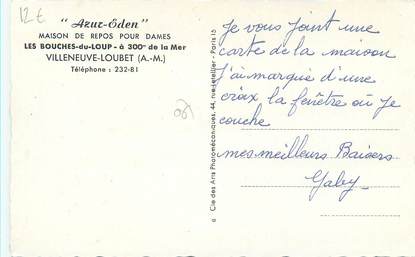 12€
"Azur-Eden"
MAISON DE REPOS POUR DAMES
LES BOUCHES-du-LOUP - à 300m de la Mer
VILLENEUVE-LOUBET (A.-M.)
Téléphone : 232-81
Cie des Arts Photomécaniques, 44, rue Letellier - Paris 15
Je vous joint une
carte de la maison
j'ai marqué d'une
croix la fenêtre où je
couche
mes meilleurs Baisers
Gaby